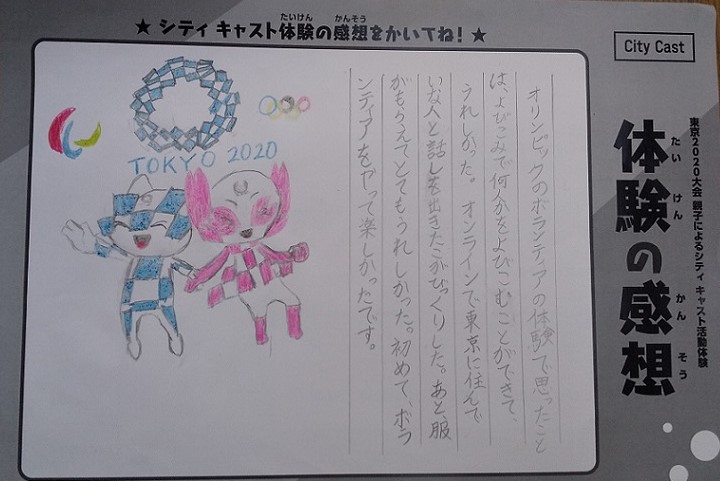 ★ シティ キャスト体験の感想をかいてね! ★
たいけん かんそう
City Cast
東京2020大会 親子によるシティ キャスト活動体験
体験の感想
たい けん かん そう
オリンピックのボランティアの体験で思ったこと
は、よびこみで何人かをよびこむことができて、
うれしかった。オンラインで東京に住んで
いな人と話しを出きたこがびっくりした。あと、服
がもらえてとてもうれしかった。初めて、ボラ
ンティアをやって楽しかったです。
TOKYO 2020